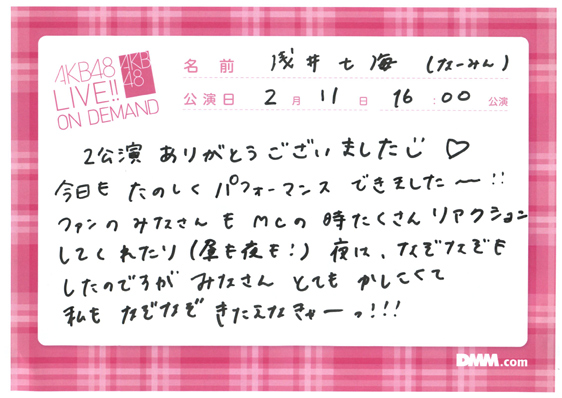 AKB48
LIVE!!
ON DEMAND
AKB
48
名前 浅井七海(なーみん)
公演日 2月11日 16:00公演
2公演 ありがとうございましたじ♡
今日も たのしく パフォーマンス できました〜!!
ファンのみなさんも MCの時たくさんリアクション
してくれたり(昼も夜も!) 夜は、なぞなぞも
したのですが みなさん とても かしこくて
私も なぞなぞ きたえなきゃーっ!!!
DMM.com